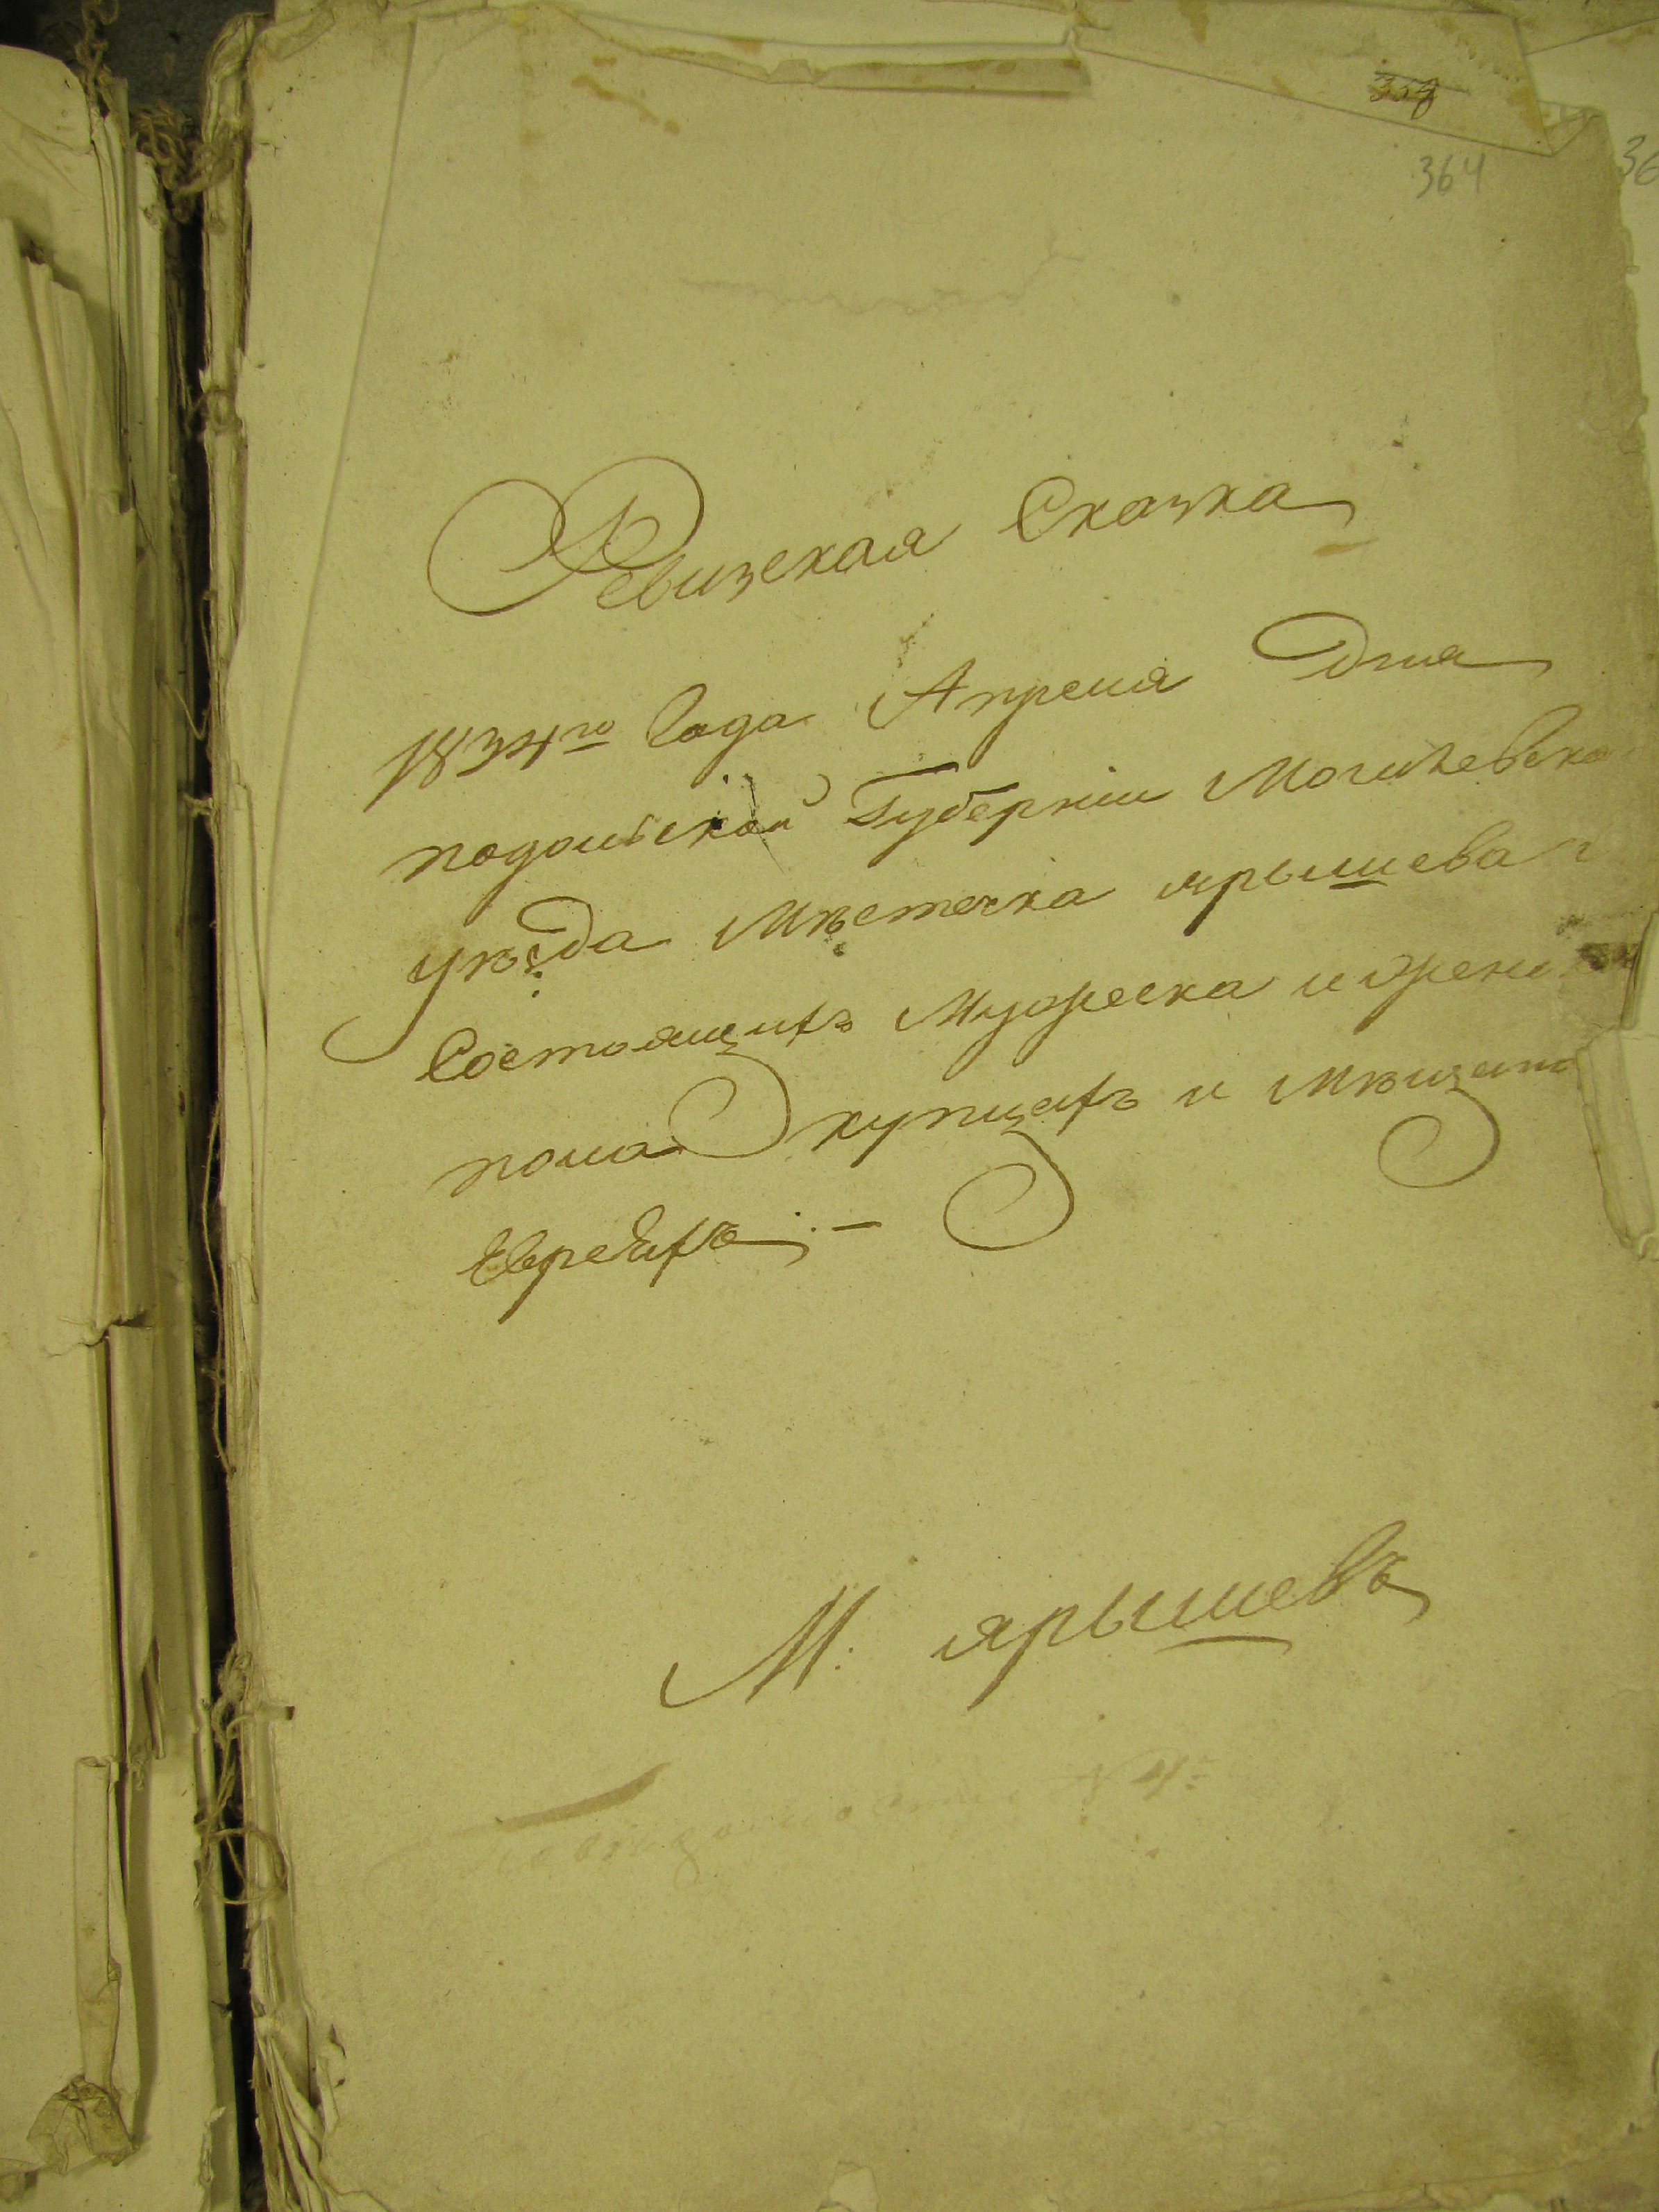 364
Ревизская Сказка
1834го Года Апреля Дня
подольской Губернии Могилевска
уѣзда Мѣстечка ярышева
Состоящихъ Мужеска и жен
пола купцахъ и Мѣщан
Евреяхъ. —
М: ярышевъ